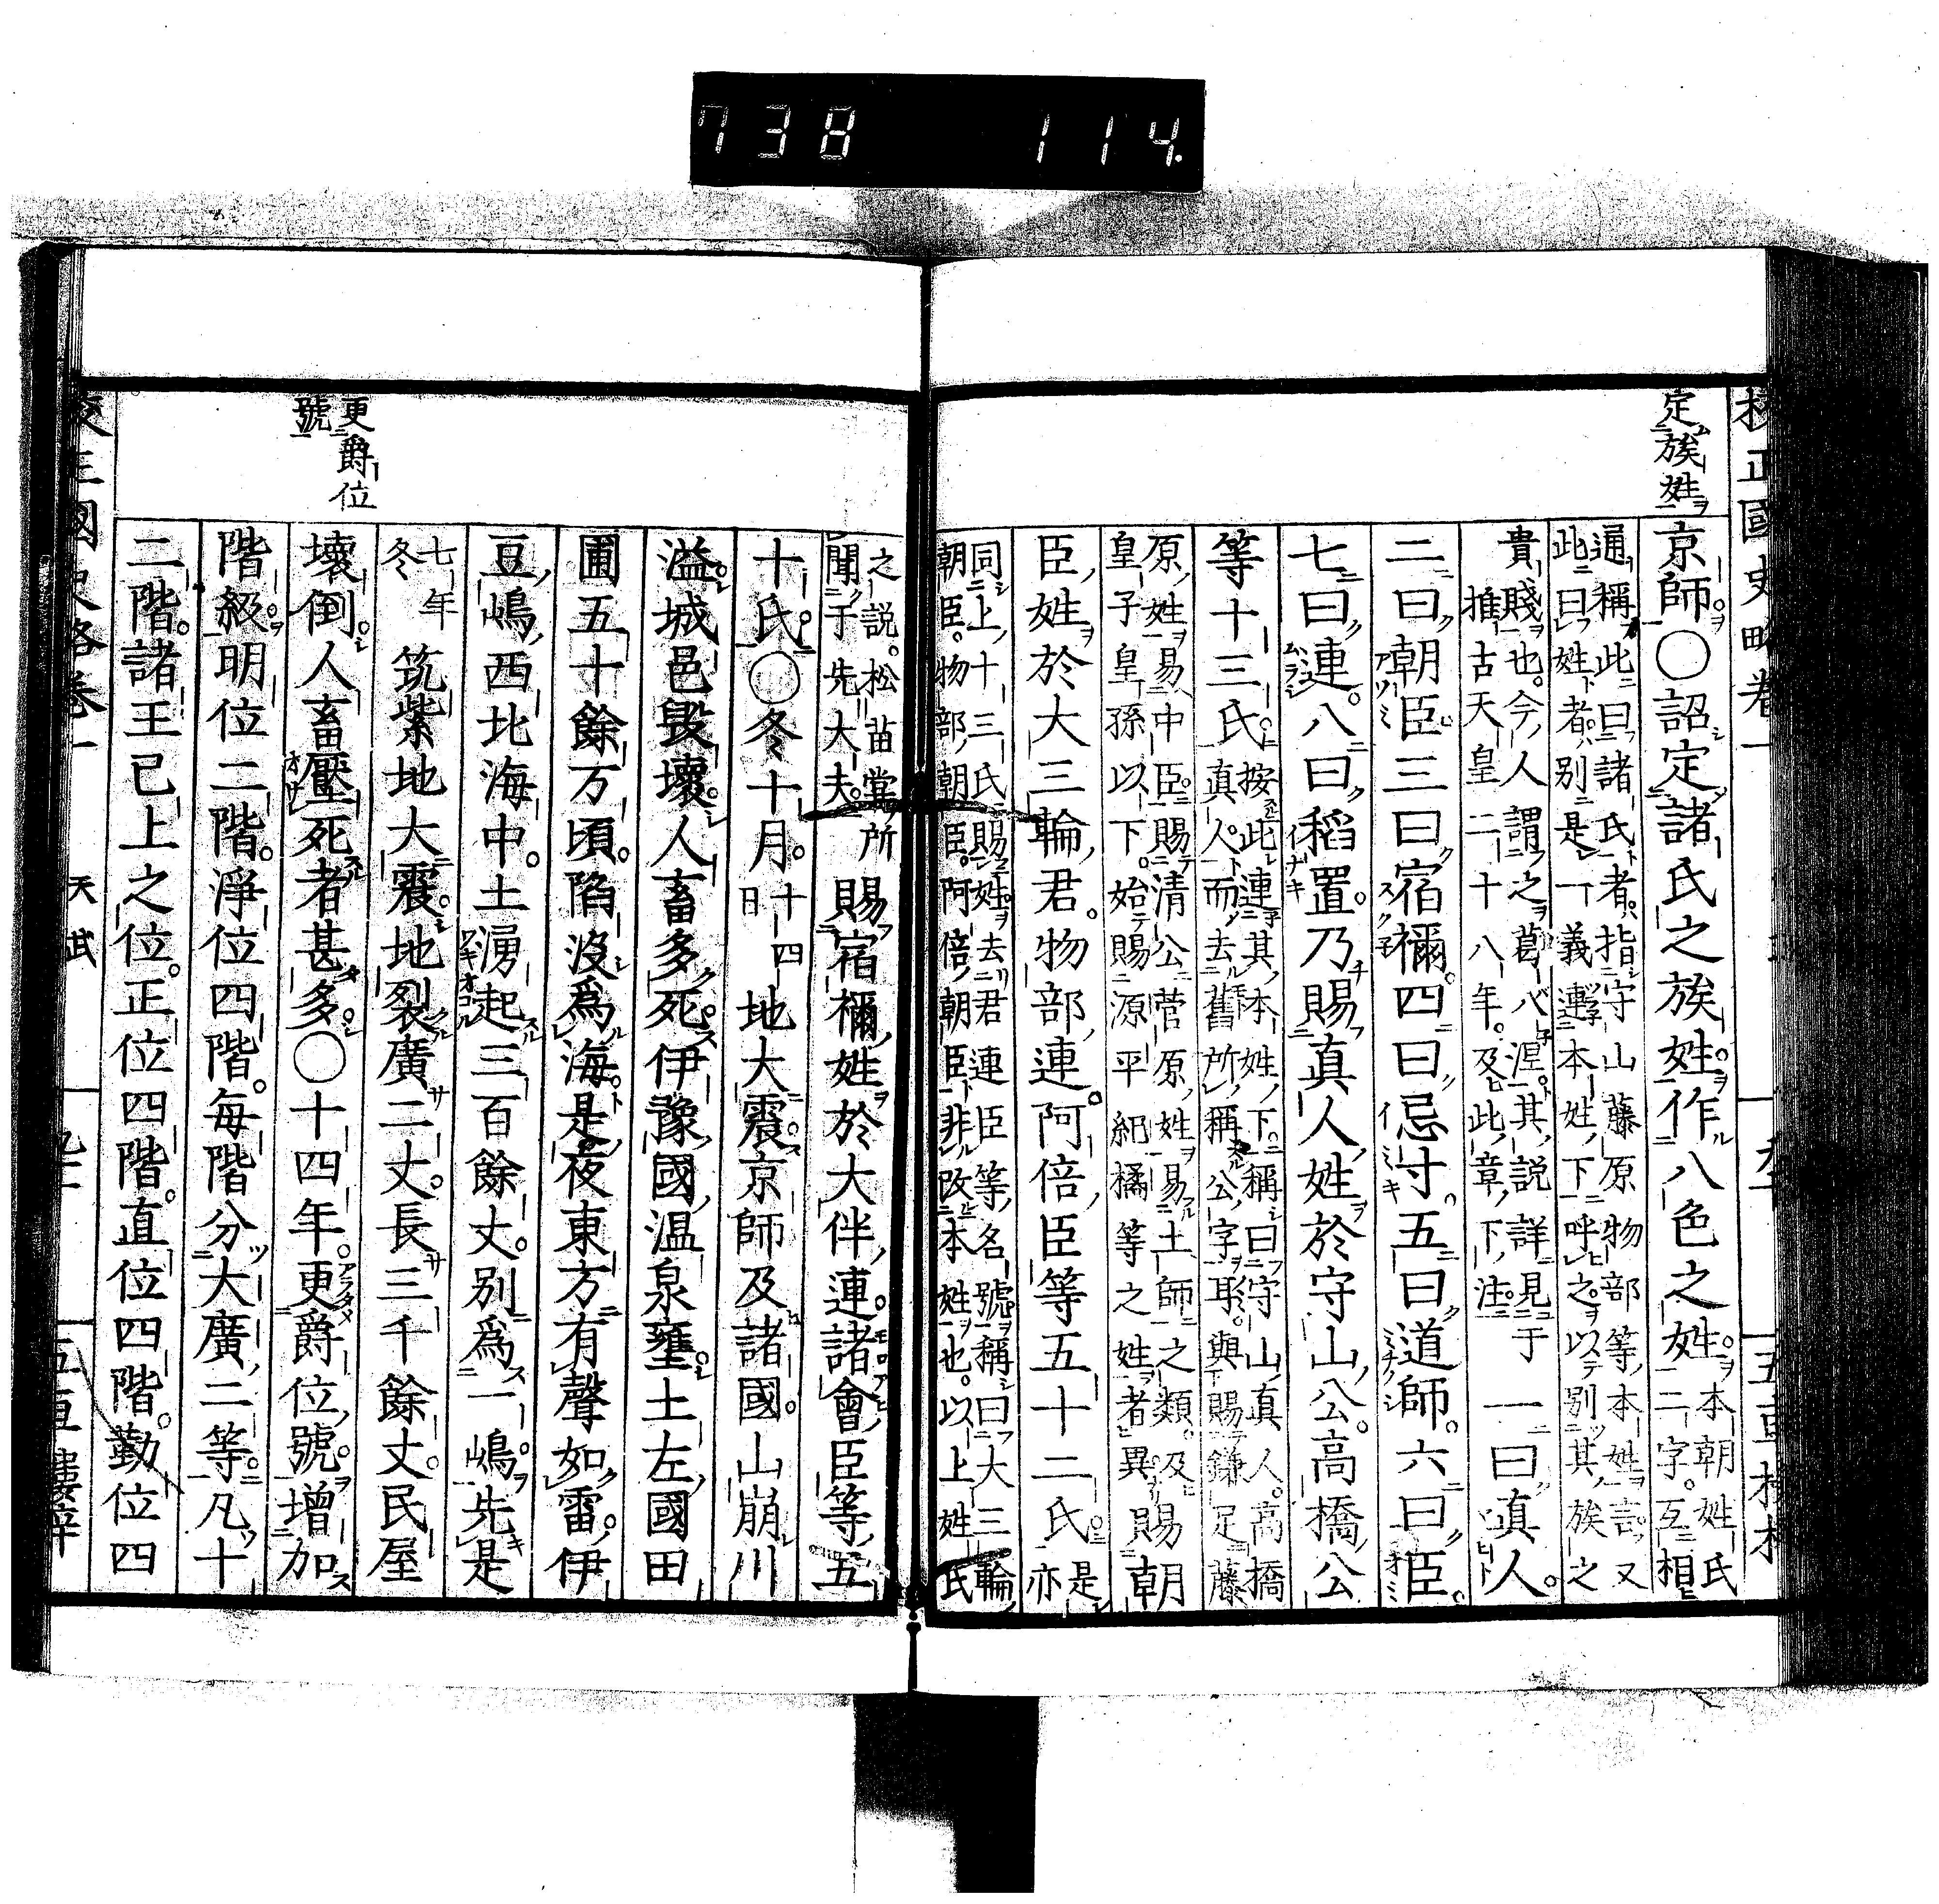 738 114.
校正國史略卷一
定族姓
京師。○詔定諸氏之族姓。作八色之姓。本朝姓氏二字。互相
通稱。此曰諸氏者。指守山藤原物部等本姓言。又
此曰姓者。別是一義。連本姓下呼之。以別其族之
貴賤也。今人謂之葛八涅。其説詳見于
推古天皇二十八年。及此章下注。一曰真人。
二曰朝臣三曰宿禰。四曰忌寸。五曰道師。六曰臣。
七曰連。八曰稻置。乃賜真人姓於守山公。高橋公
等十三氏。按此連其本姓下。稱曰守山真人。高橋
真人。而去舊所稱公字耳。與賜鎌足藤
原姓易中臣。賜清公菅原姓易土師之類。及賜朝
皇子皇孫以下。始賜源平紀橘等之姓者異
臣姓於大三輪君。物部連。阿倍臣等五十二氏。是亦
同上十三氏賜姓。去君連臣等名號稱曰大三輪
朝臣。物部朝臣。阿倍朝臣。非改本姓也。以上姓氏
之説。松苗嘗所
聞于先大夫。賜宿禰姓於大伴連。諸會臣等五
十氏。○冬十月。十四日地大震京師及諸國。山崩川
溢。城邑毀壞。人畜多死。伊豫國溫泉壅。土左國田
圃五十餘万頃。陷沒爲海。是夜東方有聲如雷。伊
豆嶋西北海中。土湧起三百餘丈。別爲一嶋。先是
七年冬筑紫地大震。地裂廣二丈。長三千餘丈。民屋
壞倒。人畜壓死者甚多。○十四年。更爵位號。增加
更爵位號
階級。明位二階。淨位四階。每階分大廣二等。凡十
二階。諸王已上之位。正位四階。直位四階。勤位四
天武